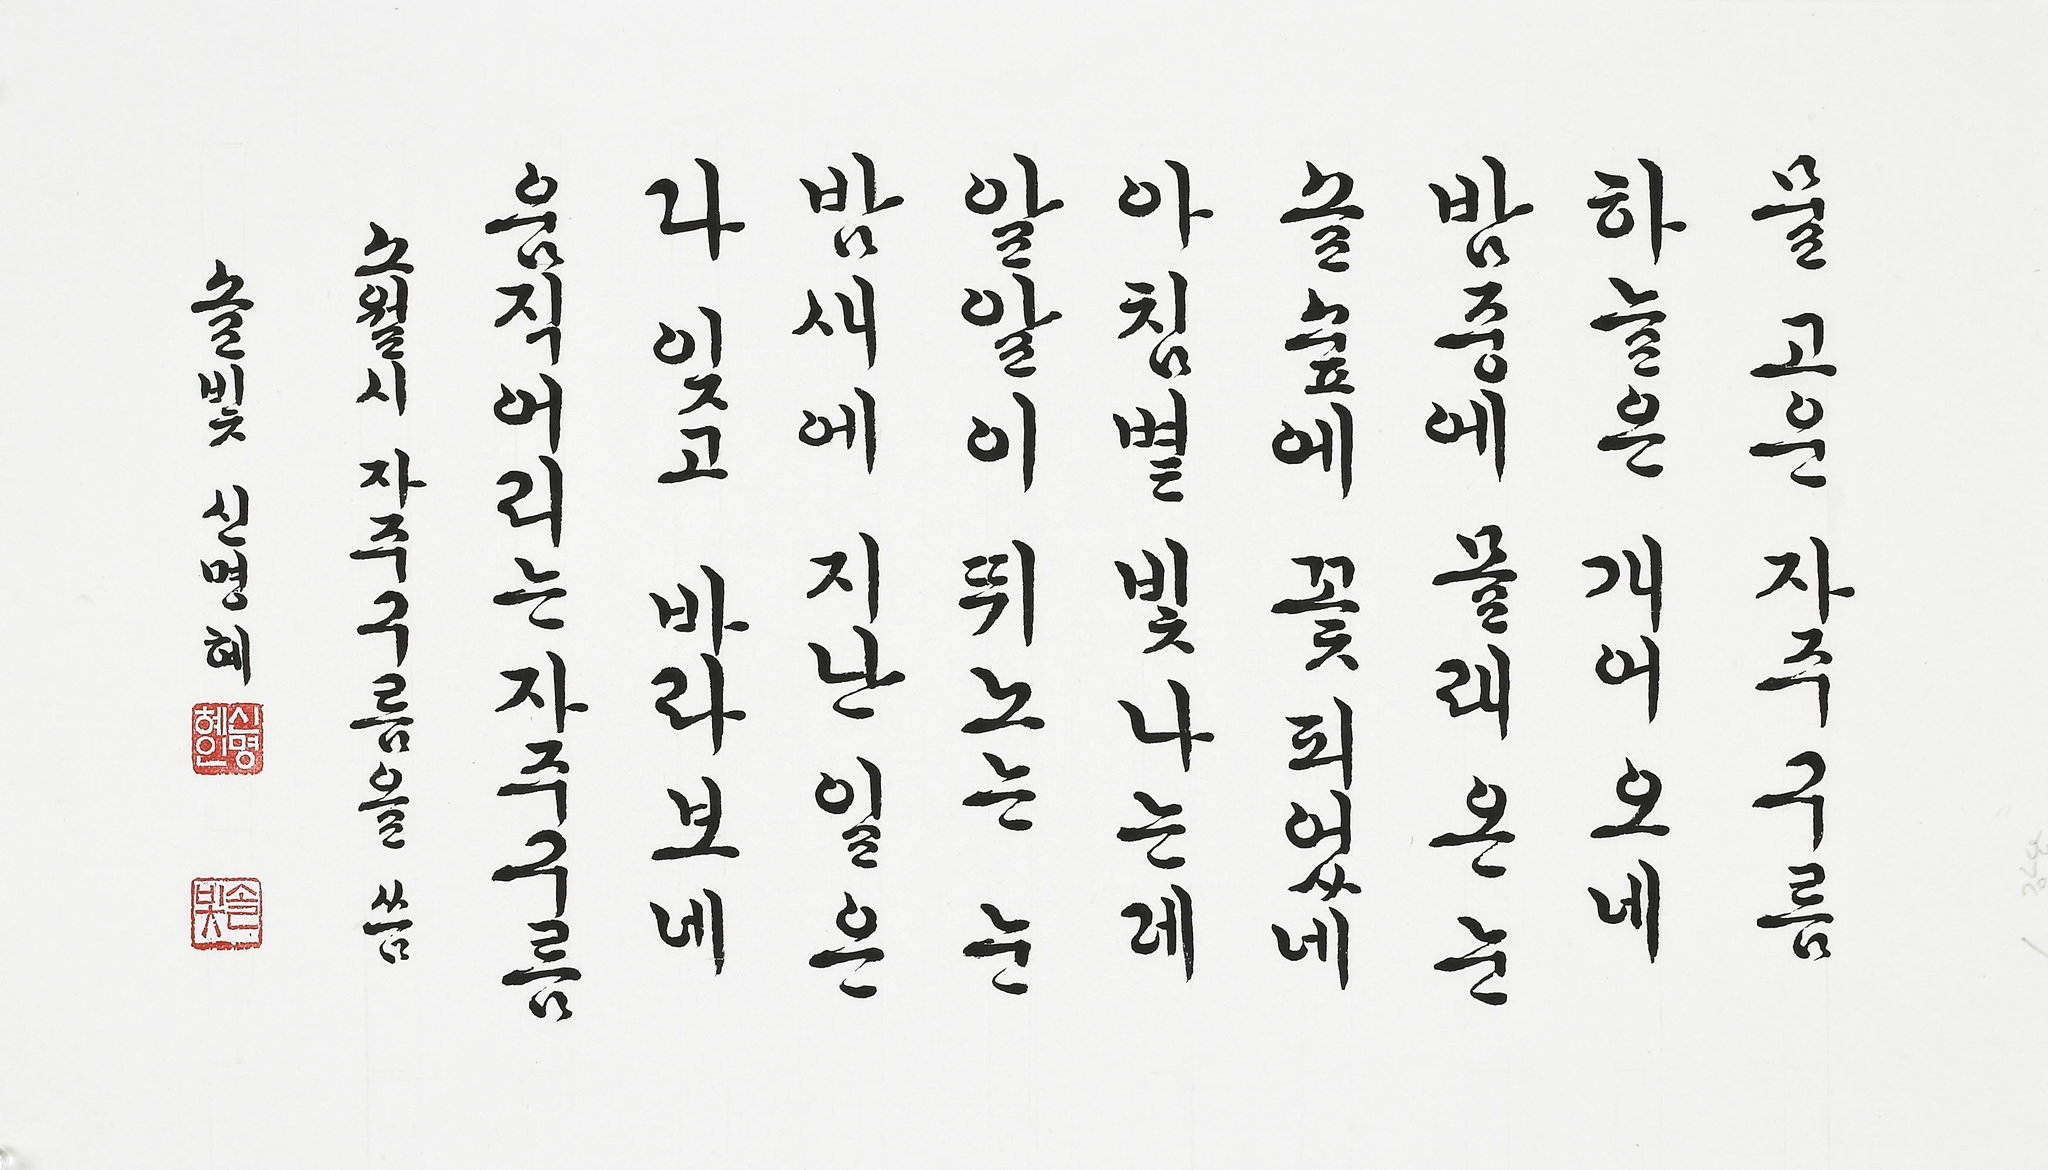 물 고운 자주 구름
하늘은 개어 오네
밤중에 몰래 온 눈
솔숲에 꽃 피었네
아침볕 빛나는데
알알이 뛰노는 눈
밤새에 지난 일은
다 잊고 바라보네
움직어리는 자주 구름
소월시 자주구름을 씀
솔빛 신명혜
신명혜인
솔빛